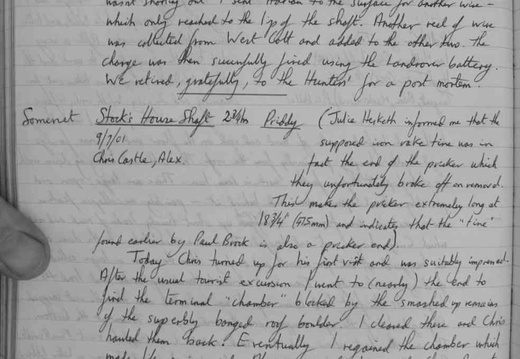 shorting out I sent to the surface for another wire -
which only reached to the lip of the shaft. Another reel of wire
was collected from West Cott and added to the other two. The
charge was then successfully fired using the Landrover battery.
We retired, gratefully, to the Hunters' for a post mortem.
Somerset Stock's House Shaft Priddy (Julie Hesketh informed me that the
9/7/01 supposed iron rake tine was in
Chris Castle, Alex. fact the end of the pricker which
they unfortunately broke off on removal.
This makes the pricker extremely long at
18¾" (475mm) and indicates that the "tine"
found earlier by Paul Brock is also a pricker end).
Today Chris turned up for his first visit and was suitably impressed.
After the usual tourist excursion I went to (nearly) the end to
find the terminal "chamber" blocked by the smashed up remains
of the superbly banged roof boulder. I cleared these and Chris
hauled them back. Eventually I regained the chamber which